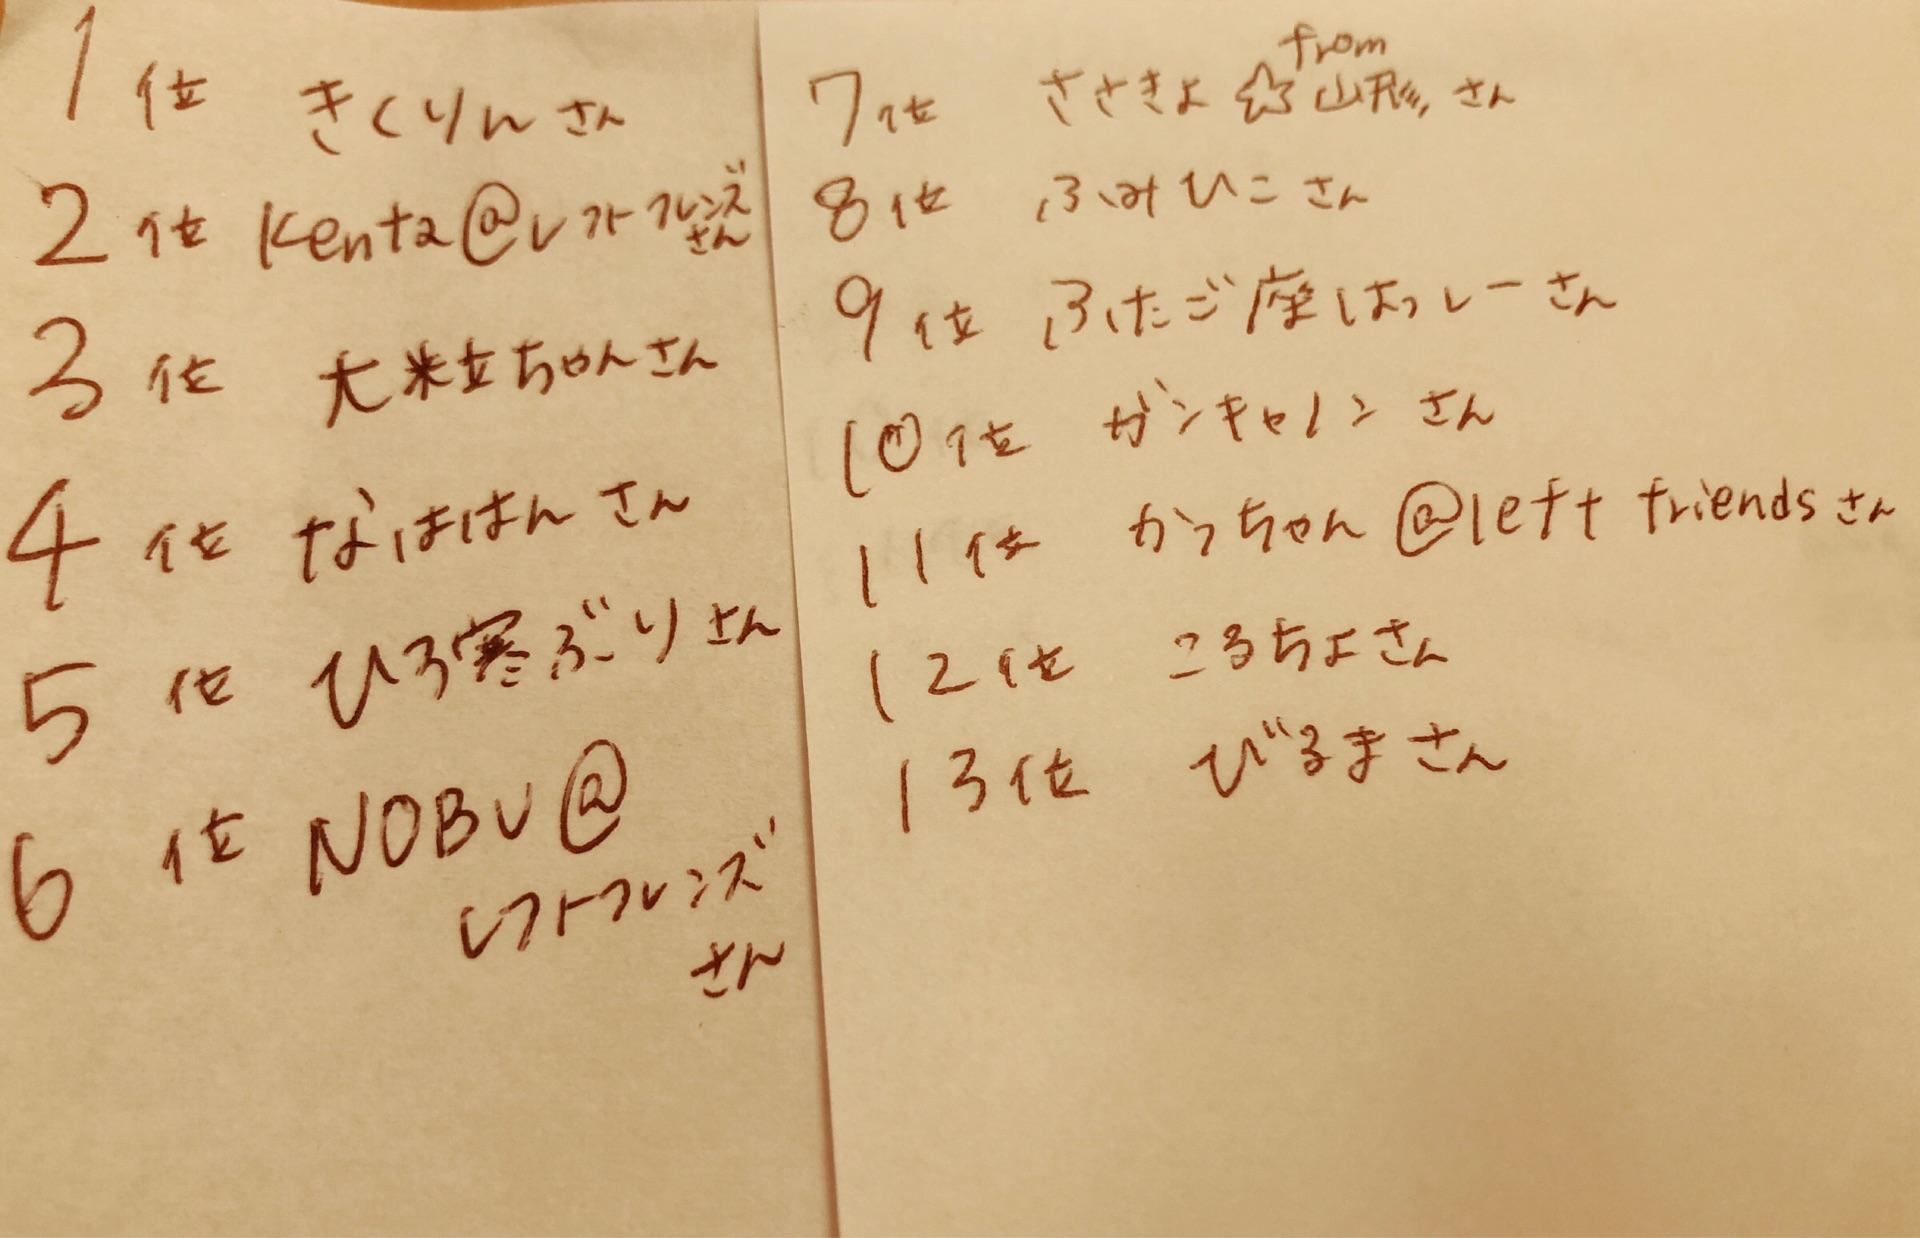 1位 きくりんさん
2位 Kenta@レフトフレンズさん
3位 大粒ちゃんさん
4位 なははんさん
5位 ひろ寒ぶりさん
6位 NOBU@
レフトフレンズ
さん
7位 ささきよ☆from山形さん
8位 ふみひこさん
9位 ふたご座はっしーさん
10位 ガンキャノンさん
11位 かっちゃん@left friendsさん
12位 こるちよさん
13位 びるまさん